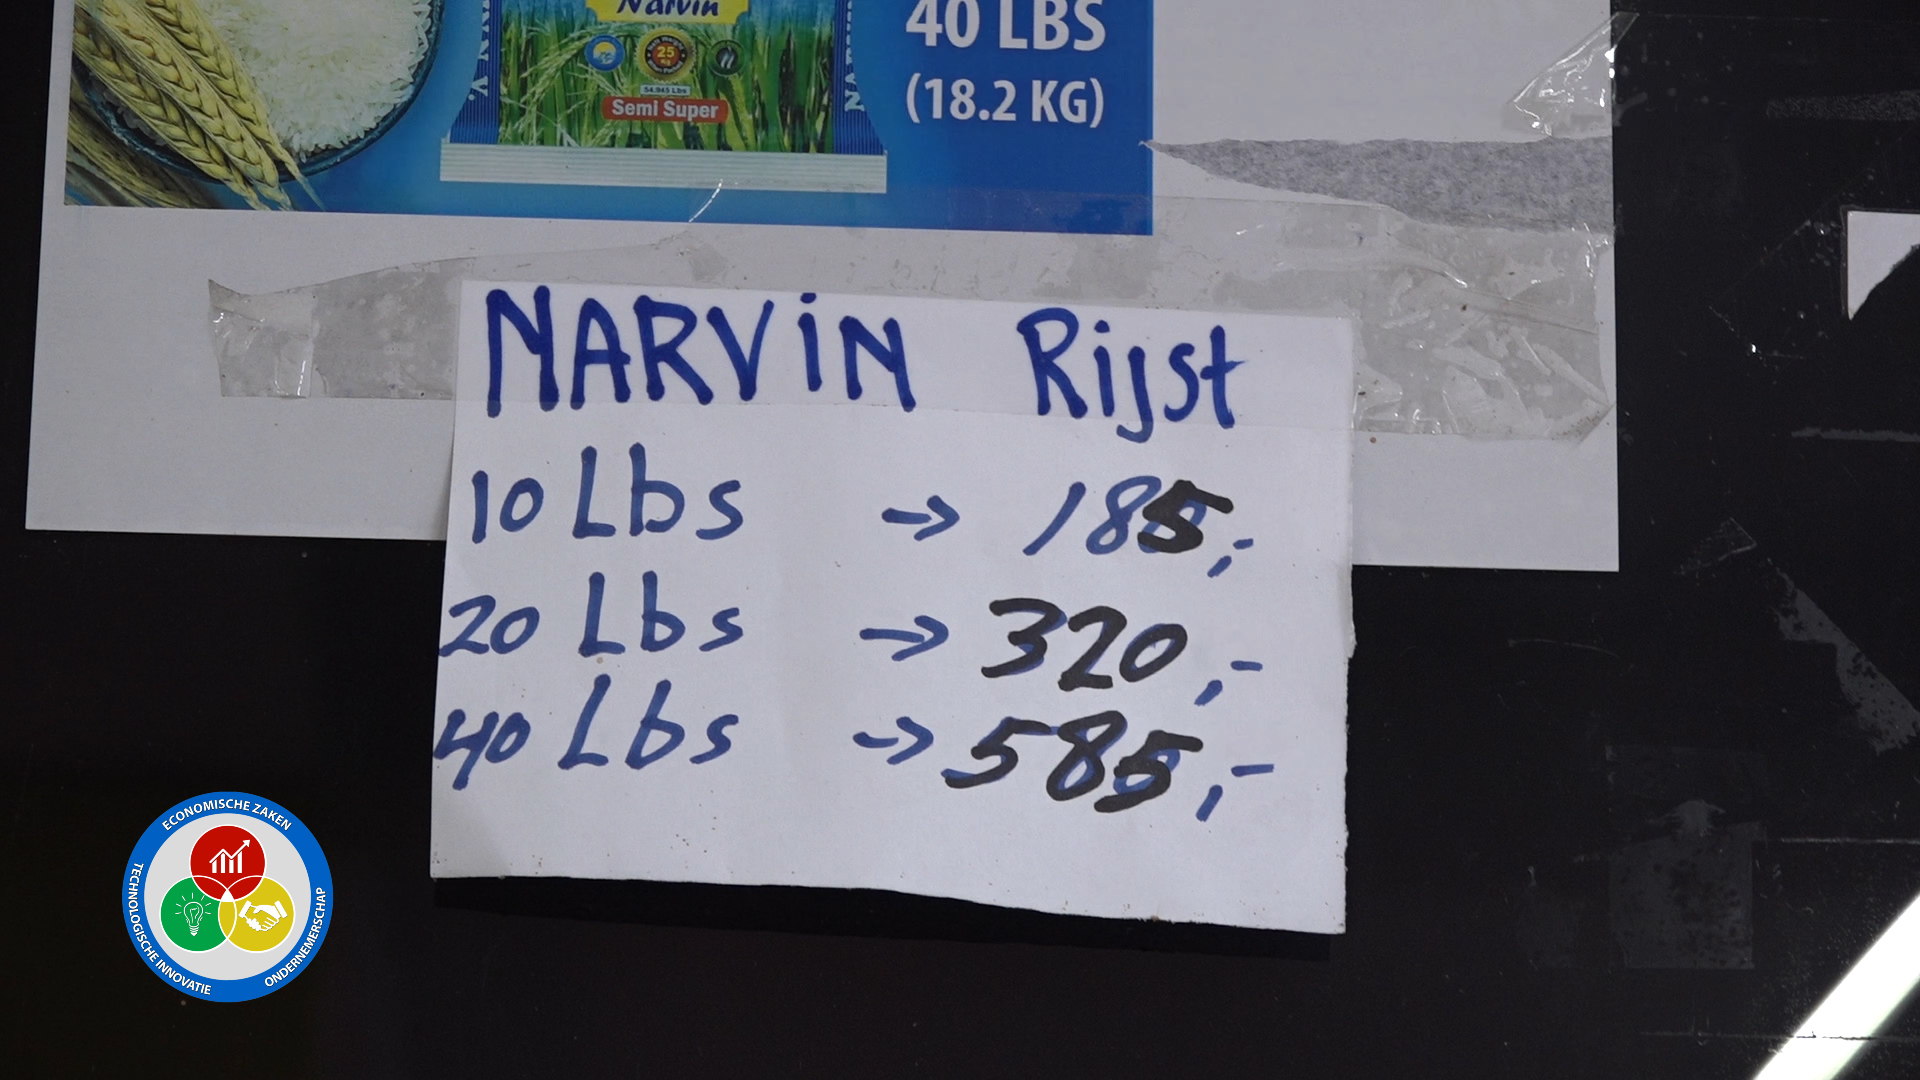 Narvin
40 LBS
(18.2 KG)
25
54.945 Lbs
Semi Super
NARVIN Rijst
10 Lbs → 185,-
20 Lbs → 320,-
40 Lbs → 585,-
ECONOMISCHE ZAKEN
TECHNOLOGISCHE INNOVATIE
ONDERNEMERSCHAP